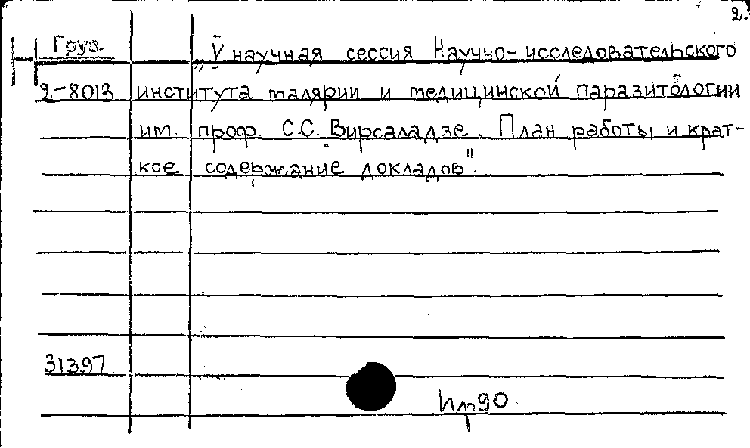 2.
Груз. „V научная сессия Научно-исследовательского
2-8013 института малярии и медицинской паразитологии
им. проф. С.С. Вирсаладзе. План работы и крат-
кое содержание докладов".
31397